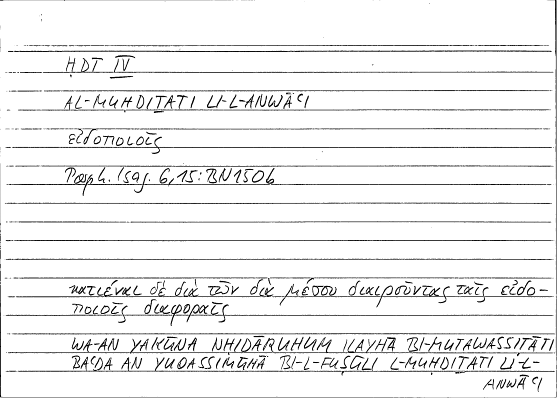 ḤDṮ IV
AL-MUḤDIṮATI LI-L-ANWĀʿI
εἰδοποιοῖς
Porph. Isag. 6,15: BN150b
κατιέναι δὲ διὰ τῶν διὰ μέσου διαιροῦντας ταῖς εἰδο-
ποιοῖς διαφοραῖς
WA-AN YAKŪNA NḤIDĀRUHUM ILAYHĀ BI-MUTAWASSIṬĀTI
BAʿDA AN YUQASSIMŪHĀ BI-L-FUṢŪLI L-MUḤDIṮATI LI-L-
ANWĀʿI